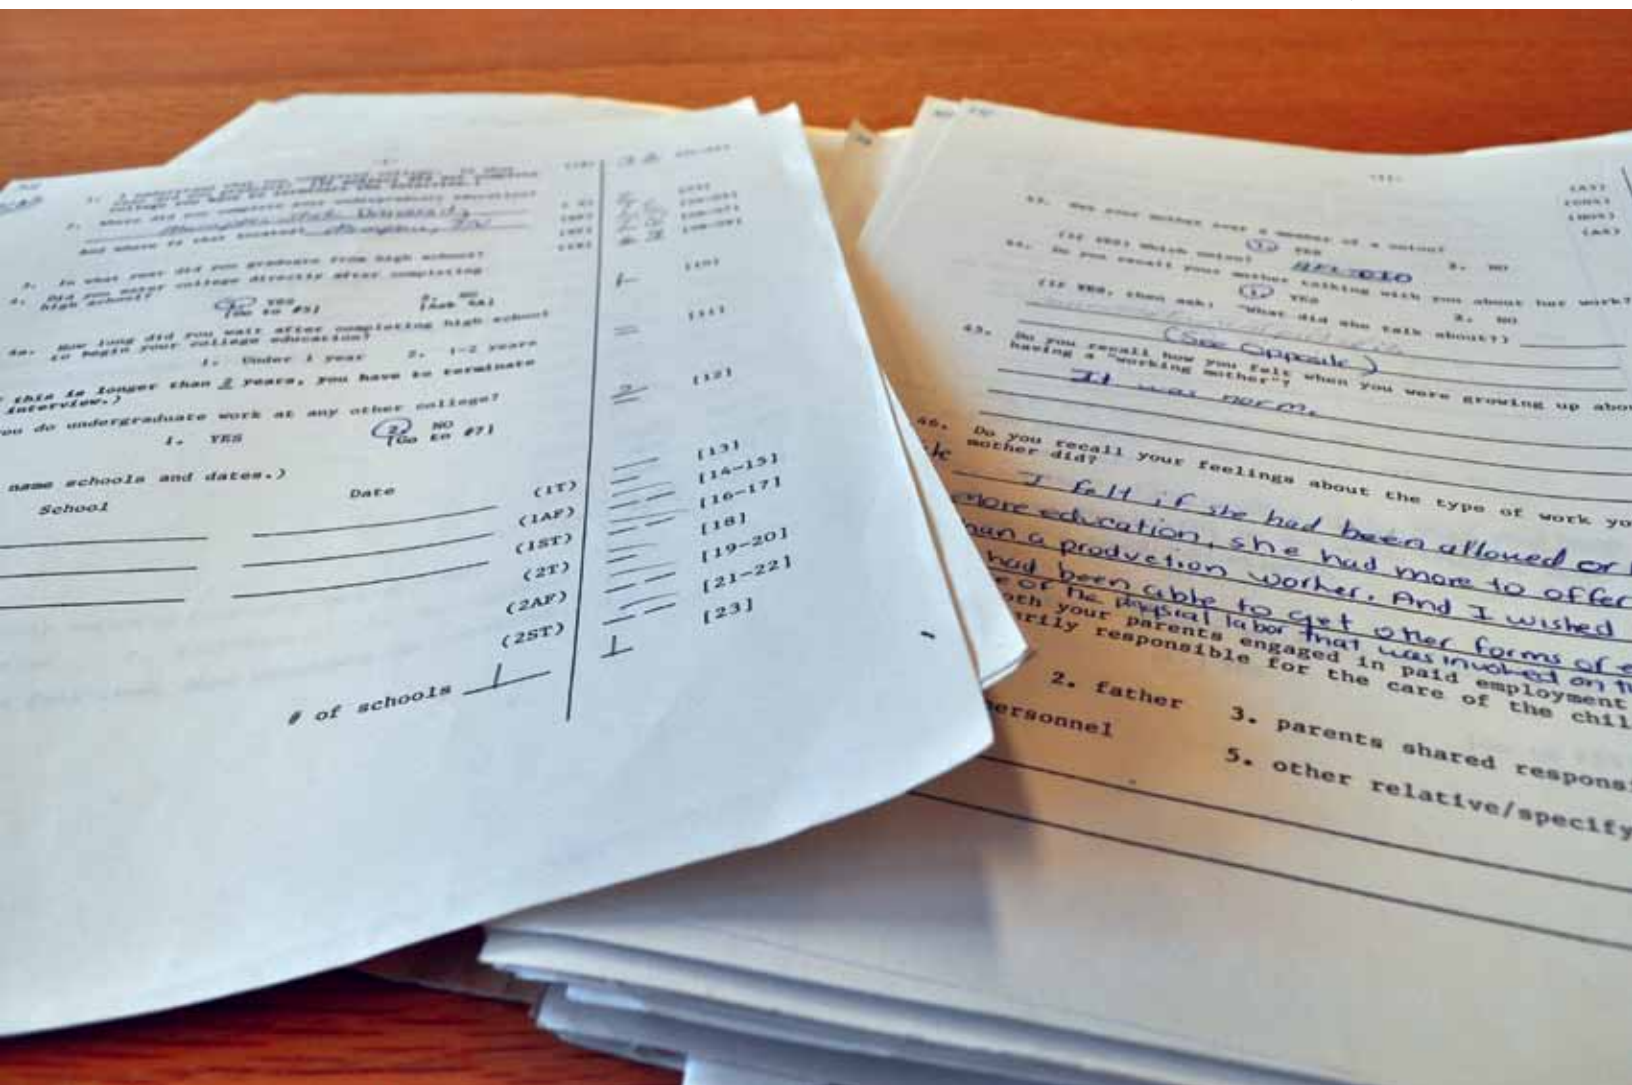 2. Where did you complete your undergraduate education?
State University
And where is that located? Memphis, TN
3. In what year did you graduate from high school?
4. Did you enter college directly after completing
high school?
1. YES 2. NO
[Go to #5] [Ask 4A]
4a. How long did you wait after completing high school
to begin your college education?
1. Under 1 year 2. 1-2 years
this is longer than 2 years, you have to terminate
interview.)
you do undergraduate work at any other college?
1. YES 2. NO
[Go to #7]
name schools and dates.)
School Date
(1T)
(1AF)
(1ST)
(2T)
(2AF)
(2ST)
# of schools 1
[10]
[11]
[12]
[13]
[14-15]
[16-17]
[18]
[19-20]
[21-22]
1 [23]
43. Was your mother ever a member of a union?
1. YES 2. NO
(if YES) Which union? AFL-CIO
44. Do you recall your mother talking with you about her work?
1. YES 2. NO
(If YES, then ask: "What did she talk about?)
(See Opposite)
45. Do you recall how you felt when you were growing up abou
having a "working mother"?
It was norm.
46. Do you recall your feelings about the type of work yo
mother did?
I felt if she had been allowed or
more education, she had more to offer
han a production worker. And I wished
had been able to get other forms of e
of the physical labor that was involved on th
oth your parents engaged in paid employment
arily responsible for the care of the chil
2. father 3. parents shared respons
personnel 5. other relative/specify